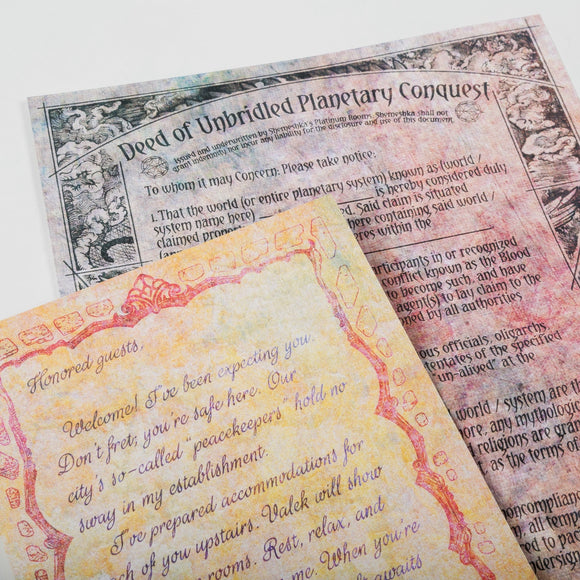 Deed of Unbridled Planetary Conquest
Issued and underwritten by Shemeshka's Platinum Rooms. Shemeshka shall not
grant indemnity nor incur any liability for the disclosure and use of this document.
To whom it may Concern: Please take notice:
1.That the world (or entire planetary system) known as (world /
system name here) is hereby considered duly
claimed proper ed. Said claim is situated
here containing said world /
eres within the
participants in or recognized
conflict known as the Blood
to become such, and have
agent(s) to lay claim to the
ned by all authorities
ous officials, oligarchs
tentates of the specified
"un-alived" at the
world / system are the
ore, any mythologie
religions are gran
t, as the terms of
noncomplianc
, all tempe
ed to pac
dersig
Honored guests,
Welcome! I've been expecting you.
Don't fret; you're safe here. Our
city's so-called "peacekeepers" hold no
sway in my establishment.
I've prepared accommodations for
ch of you upstairs. Valek will show
rooms. Rest, relax, and
me. When you're
awaits